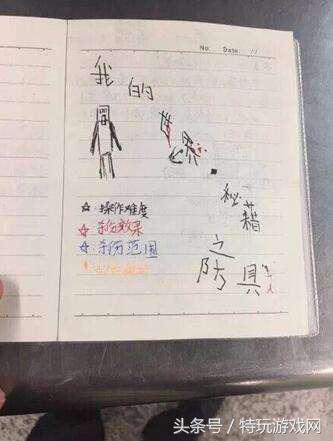 No.
Date
我的世界
秘籍之防具
☆操作难度
☆杀伤效果
☆杀伤范围
头条号／特玩游戏网